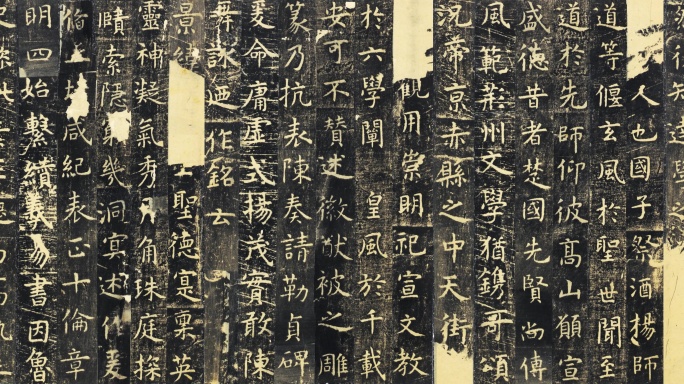 後知達學之
人也國子祭酒楊師
道等偃玄風於聖世聞至
道於先師仰彼高山願宣
盛德昔者楚國先賢尚傳
風範荊州文學猶鐫哥頌
況帝京赤縣之中天街
觀用崇明祀宣文教
於六學闡皇風於千載
安可不贊述徽猷被之雕
篆乃抗表陳奏請勒貞碑
爰命庸虛式揚茂實敢陳
舞詠迺作銘云
景緯聖德寔稟英
靈神凝氣秀月角珠庭探
賾索隱窮幾洞冥述作爰
咸紀表正十倫章
明四始繫纘羲易書因魯